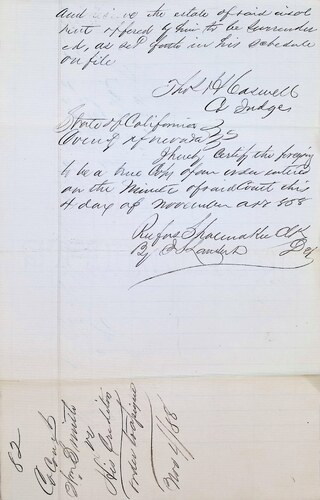 and
the estate of said insol
vent offered by him to be surrender
ed, as set forth in his schedule
on file
Thos H Caswell
Co Judge
State of California
County of Nevada SS
I hereby certify the foregoing
to be a true Copy of an order entered
on the Minutes of said Court this
4 day of November AD 1858
Rufus Shoemaker Clk
By
Dep
82
Co Court
Wm Smith
vs
His Creditors
Nov 4/58